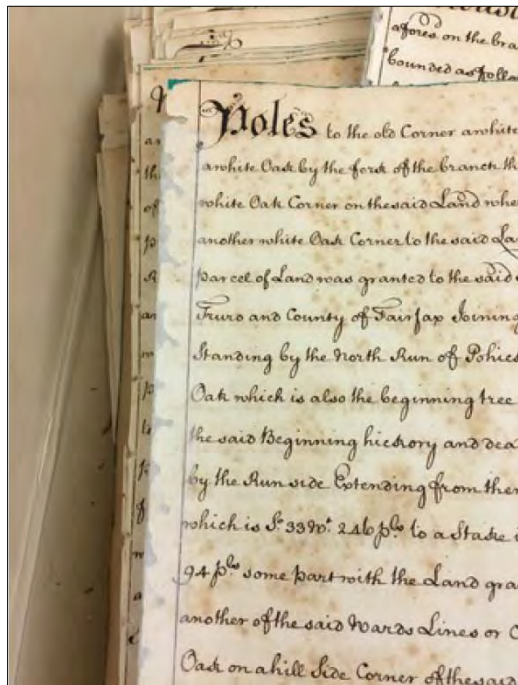 afores. on the bra
bounded as follo
Poles to the old Corner awhite
awhite Oak by the fork of the branch th
white Oak Corner on the said Land whe
another white Oak Corner to the said La
parcel of Land was granted to the said
Truro and County of Fairfax Joining
Standing by the North Run of Pohick
Oak which is also the beginning tree
the said Beginning hickory and dea
by the Run side Extending from then
which is So. 33 Wt. 246 pls to a Stake i
94 pls some part with the Land gra
another of the said Wards Lines or C
Oak on a hill Side Corner of the said